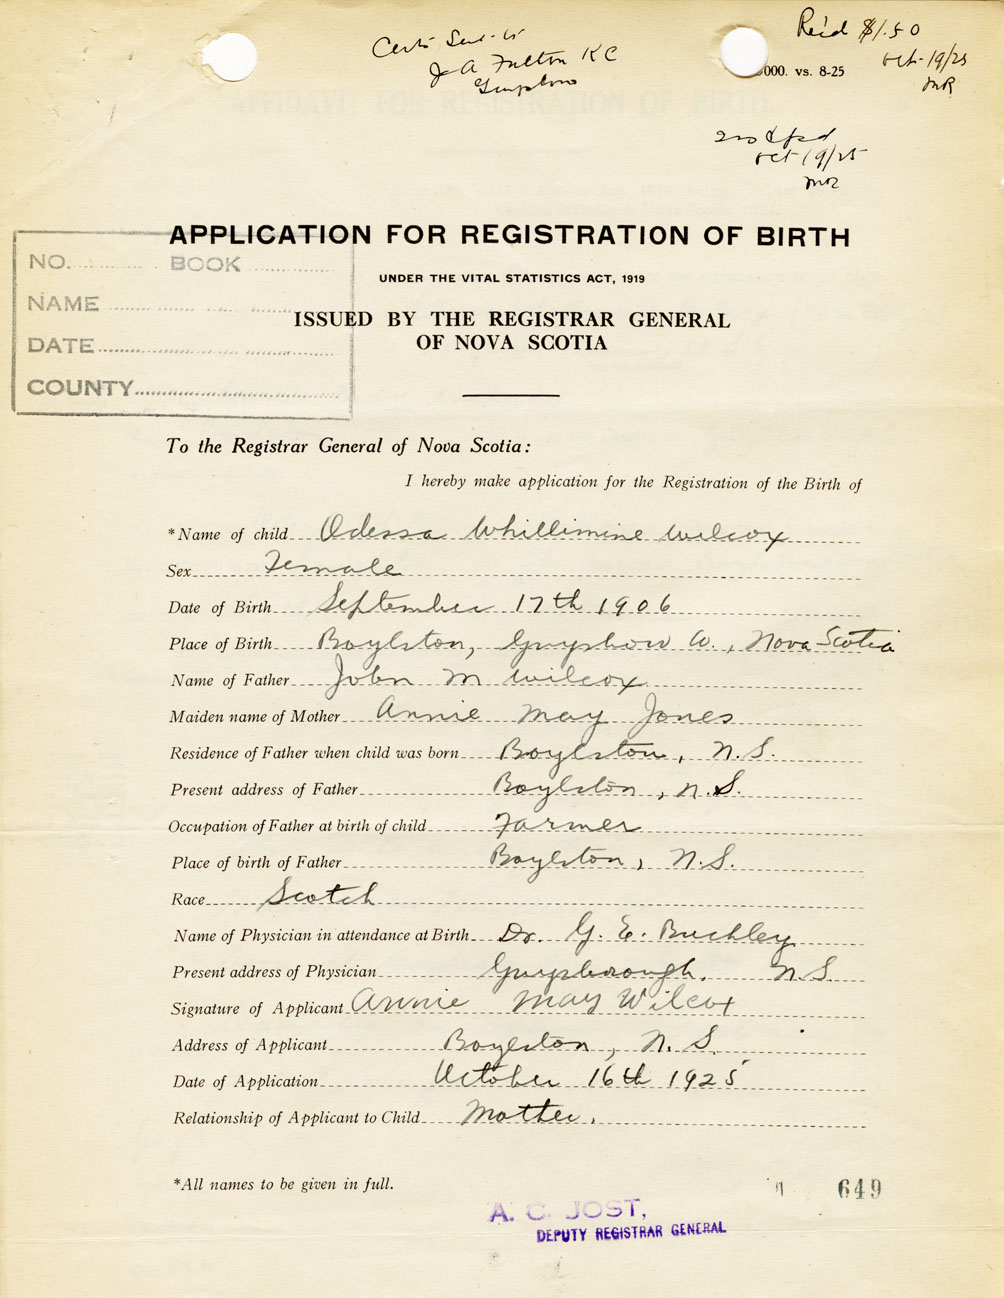 Rec'd $1.50
Oct-19/25
MR
Cert Sent to
J A Fulton KC
Guysboro
000. vs. 8-25
Oct 19/25
MR
APPLICATION FOR REGISTRATION OF BIRTH
UNDER THE VITAL STATISTICS ACT, 1919
ISSUED BY THE REGISTRAR GENERAL
OF NOVA SCOTIA
NO. BOOK
NAME
DATE
COUNTY
To the Registrar General of Nova Scotia:
I hereby make application for the Registration of the Birth of
*Name of child Odessa Whillimine Wilcox
Sex Female
Date of Birth September 17th 1906
Place of Birth Boylston, Guysboro Co., Nova Scotia
Name of Father John M Wilcox
Maiden name of Mother Annie May Jones
Residence of Father when child was born Boylston, N.S.
Present address of Father Boylston, N.S.
Occupation of Father at birth of child Farmer
Place of birth of Father Boylston, N.S.
Race Scotch
Name of Physician in attendance at Birth Dr. G. E. Buckley
Present address of Physician Guysborough, N.S.
Signature of Applicant Annie May Wilcox
Address of Applicant Boylston, N.S.
Date of Application October 16th 1925
Relationship of Applicant to Child Mother.
*All names to be given in full.
649
A. C. JOST,
DEPUTY REGISTRAR GENERAL